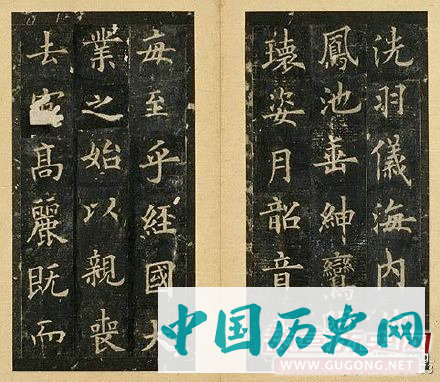 洗羽儀海內
鳳池垂紳鸞
瓌姿月韶音
每至乎經國大
業之始以親喪
去官高麗既而
中国历史网
WWW.GUGONG.NET